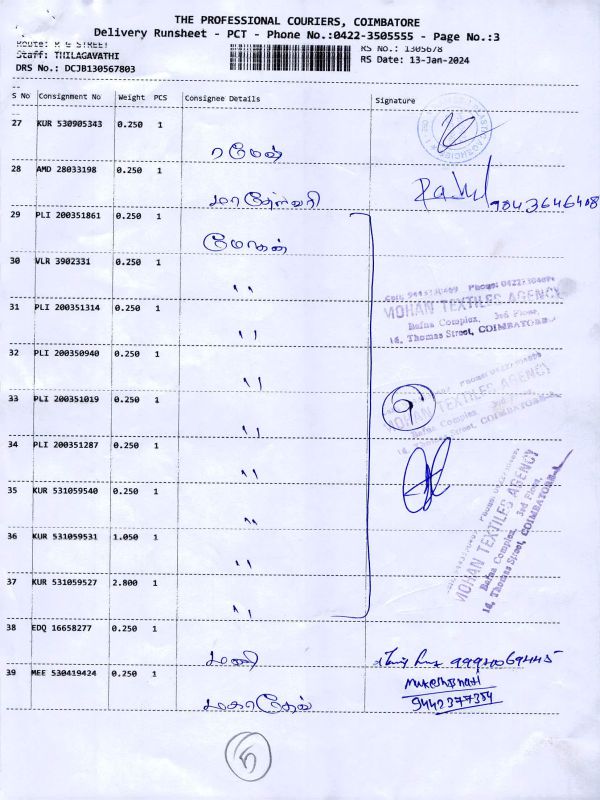 THE PROFESSIONAL COURIERS, COIMBATORE
Delivery Runsheet - PCT - Phone No.:0422-3505555 - Page No.:3
Route: R G STREET
Staff: THILAGAVATHI
DRS No.: DCJB130567803
RS No.: 1305678
RS Date: 13-Jan-2024
S No Consignment No Weight PCS Consignee Details Signature
27 KUR 530905343 0.250 1
ரமேஷ்
28 AMD 28033198 0.250 1
மாதேஸ்வரி
9843646408
29 PLI 200351861 0.250 1
மோகன்
30 VLR 3902331 0.250 1
"
31 PLI 200351314 0.250 1
"
MOHAN TEXTILES AGENCY
Bafna Complex, 3rd Floor,
16, Thomas Street, COIMBATORE
32 PLI 200350940 0.250 1
"
33 PLI 200351019 0.250 1
"
9
MOHAN TEXTILES AGENCY
Bafna Complex, 3rd Floor,
16, Thomas Street, COIMBATORE
34 PLI 200351287 0.250 1
"
35 KUR 531059540 0.250 1
"
36 KUR 531059531 1.050 1
"
37 KUR 531059527 2.800 1
"
MOHAN TEXTILES AGENCY
Bafna Complex, 3rd Floor,
16, Thomas Street, COIMBATORE
38 EDQ 16658277 0.250 1
மணி
39 MEE 530419424 0.250 1
மகாதேவ்
9442377384
5